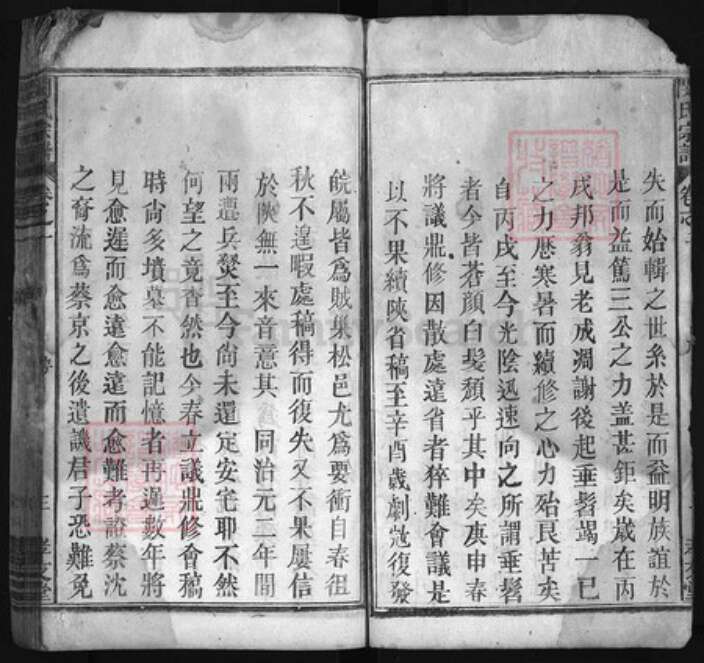 失而始輯之世系於是而益明族誼於
是而益篤三公之力蓋甚鉅矣歲在丙
戌邦翁見老成凋謝後起垂髫竭一己
之力歷寒暑而續修之心力殆艮苦矣
自丙戌至今光陰迅速向之所謂垂髫
者今皆蒼顏白髮頹乎其中矣庚申春
將議鼎修因散處遠省者猝難會議是
以不果續陝省稿至辛酉歲劇寇復發
皖屬皆為賊巢松邑尤為要衝自春徂
秋不遑暇處稿得而復失又不果屢信
於陝無一來音意其 同治元二年間
兩遭兵燹至今尚未還定安宅耶不然
何望之竟杳然也今春立議鼎修會稿
時尚多墳墓不能記憶者再遲數年將
見愈遲而愈遠愈遠而愈難考證蔡沈
之裔流為蔡京之後遺譏君子恐難免
氏宗譜
卷之一